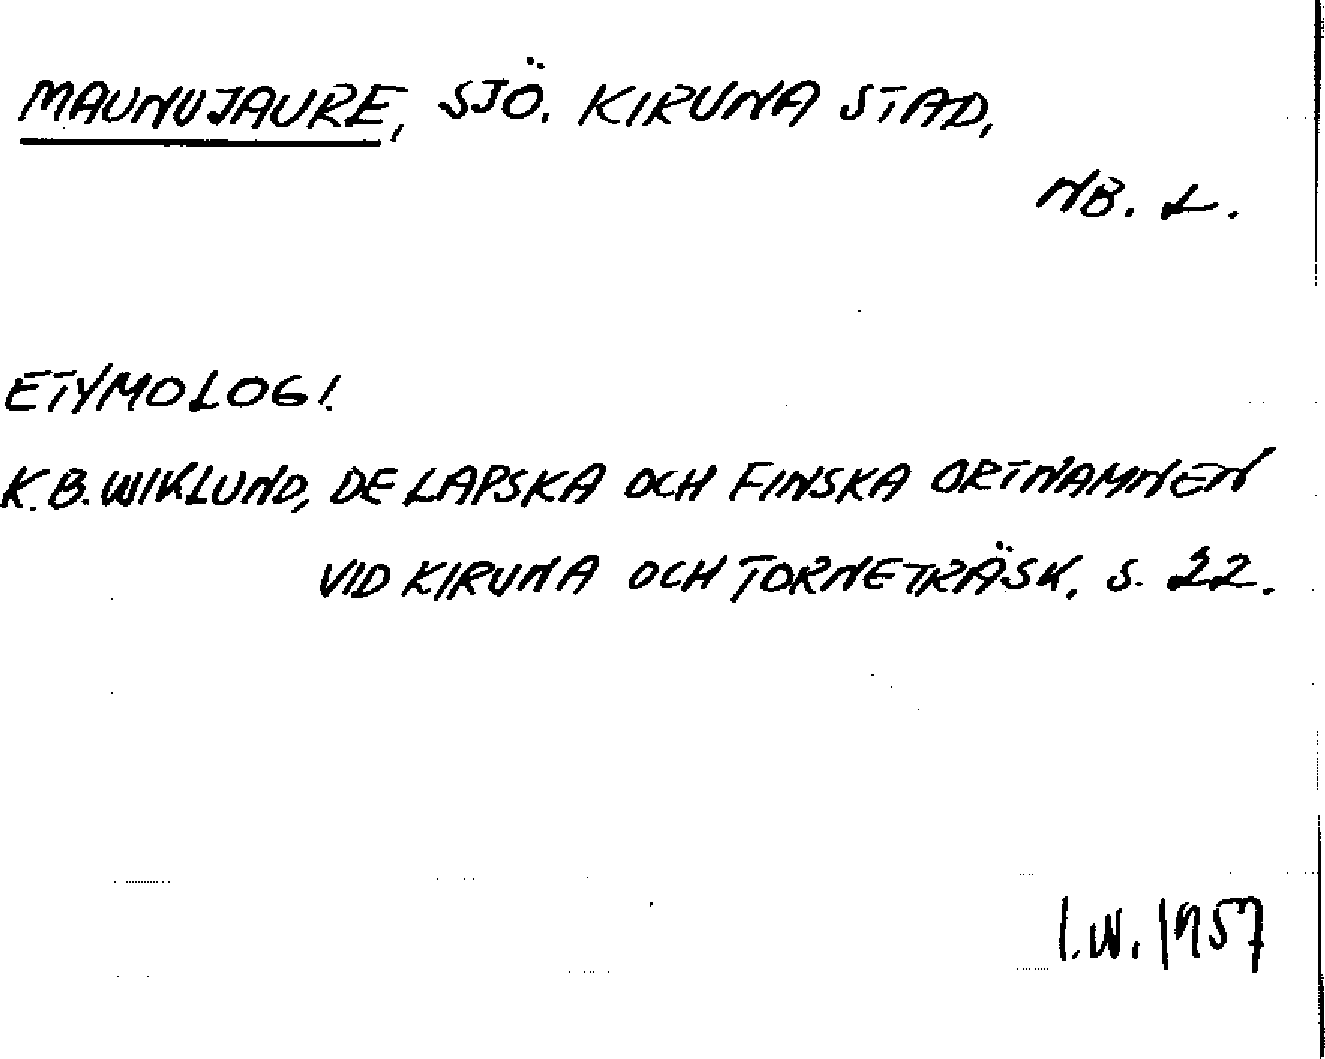 MAUNUJAURE, SJÖ. KIRUNA STAD,
NB. L.
ETYMOLOGI.
K.B. WIKLUND, DE LAPSKA OCH FINSKA ORTNAMNEN
VID KIRUNA OCH TORNETRÄSK. S. 22.
I.W. 1957